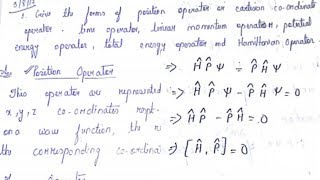 1. Give the forms of position operator or cartesian co-ordinate
operator - time operator, linear momentum operator, potential
energy operator, total energy operator and Hamiltonian Operator.
Position Operator
This operator are represented
x, y, z co-ordinates rept-
on a wave function, the
the corresponding co-ordina
⇒ Ĥ P̂ Ψ = P̂ Ĥ Ψ
⇒ Ĥ P̂ Ψ - P̂ Ĥ Ψ = 0
Ĥ P̂ - P̂ Ĥ = 0
⇒ [Ĥ, P̂] = 0